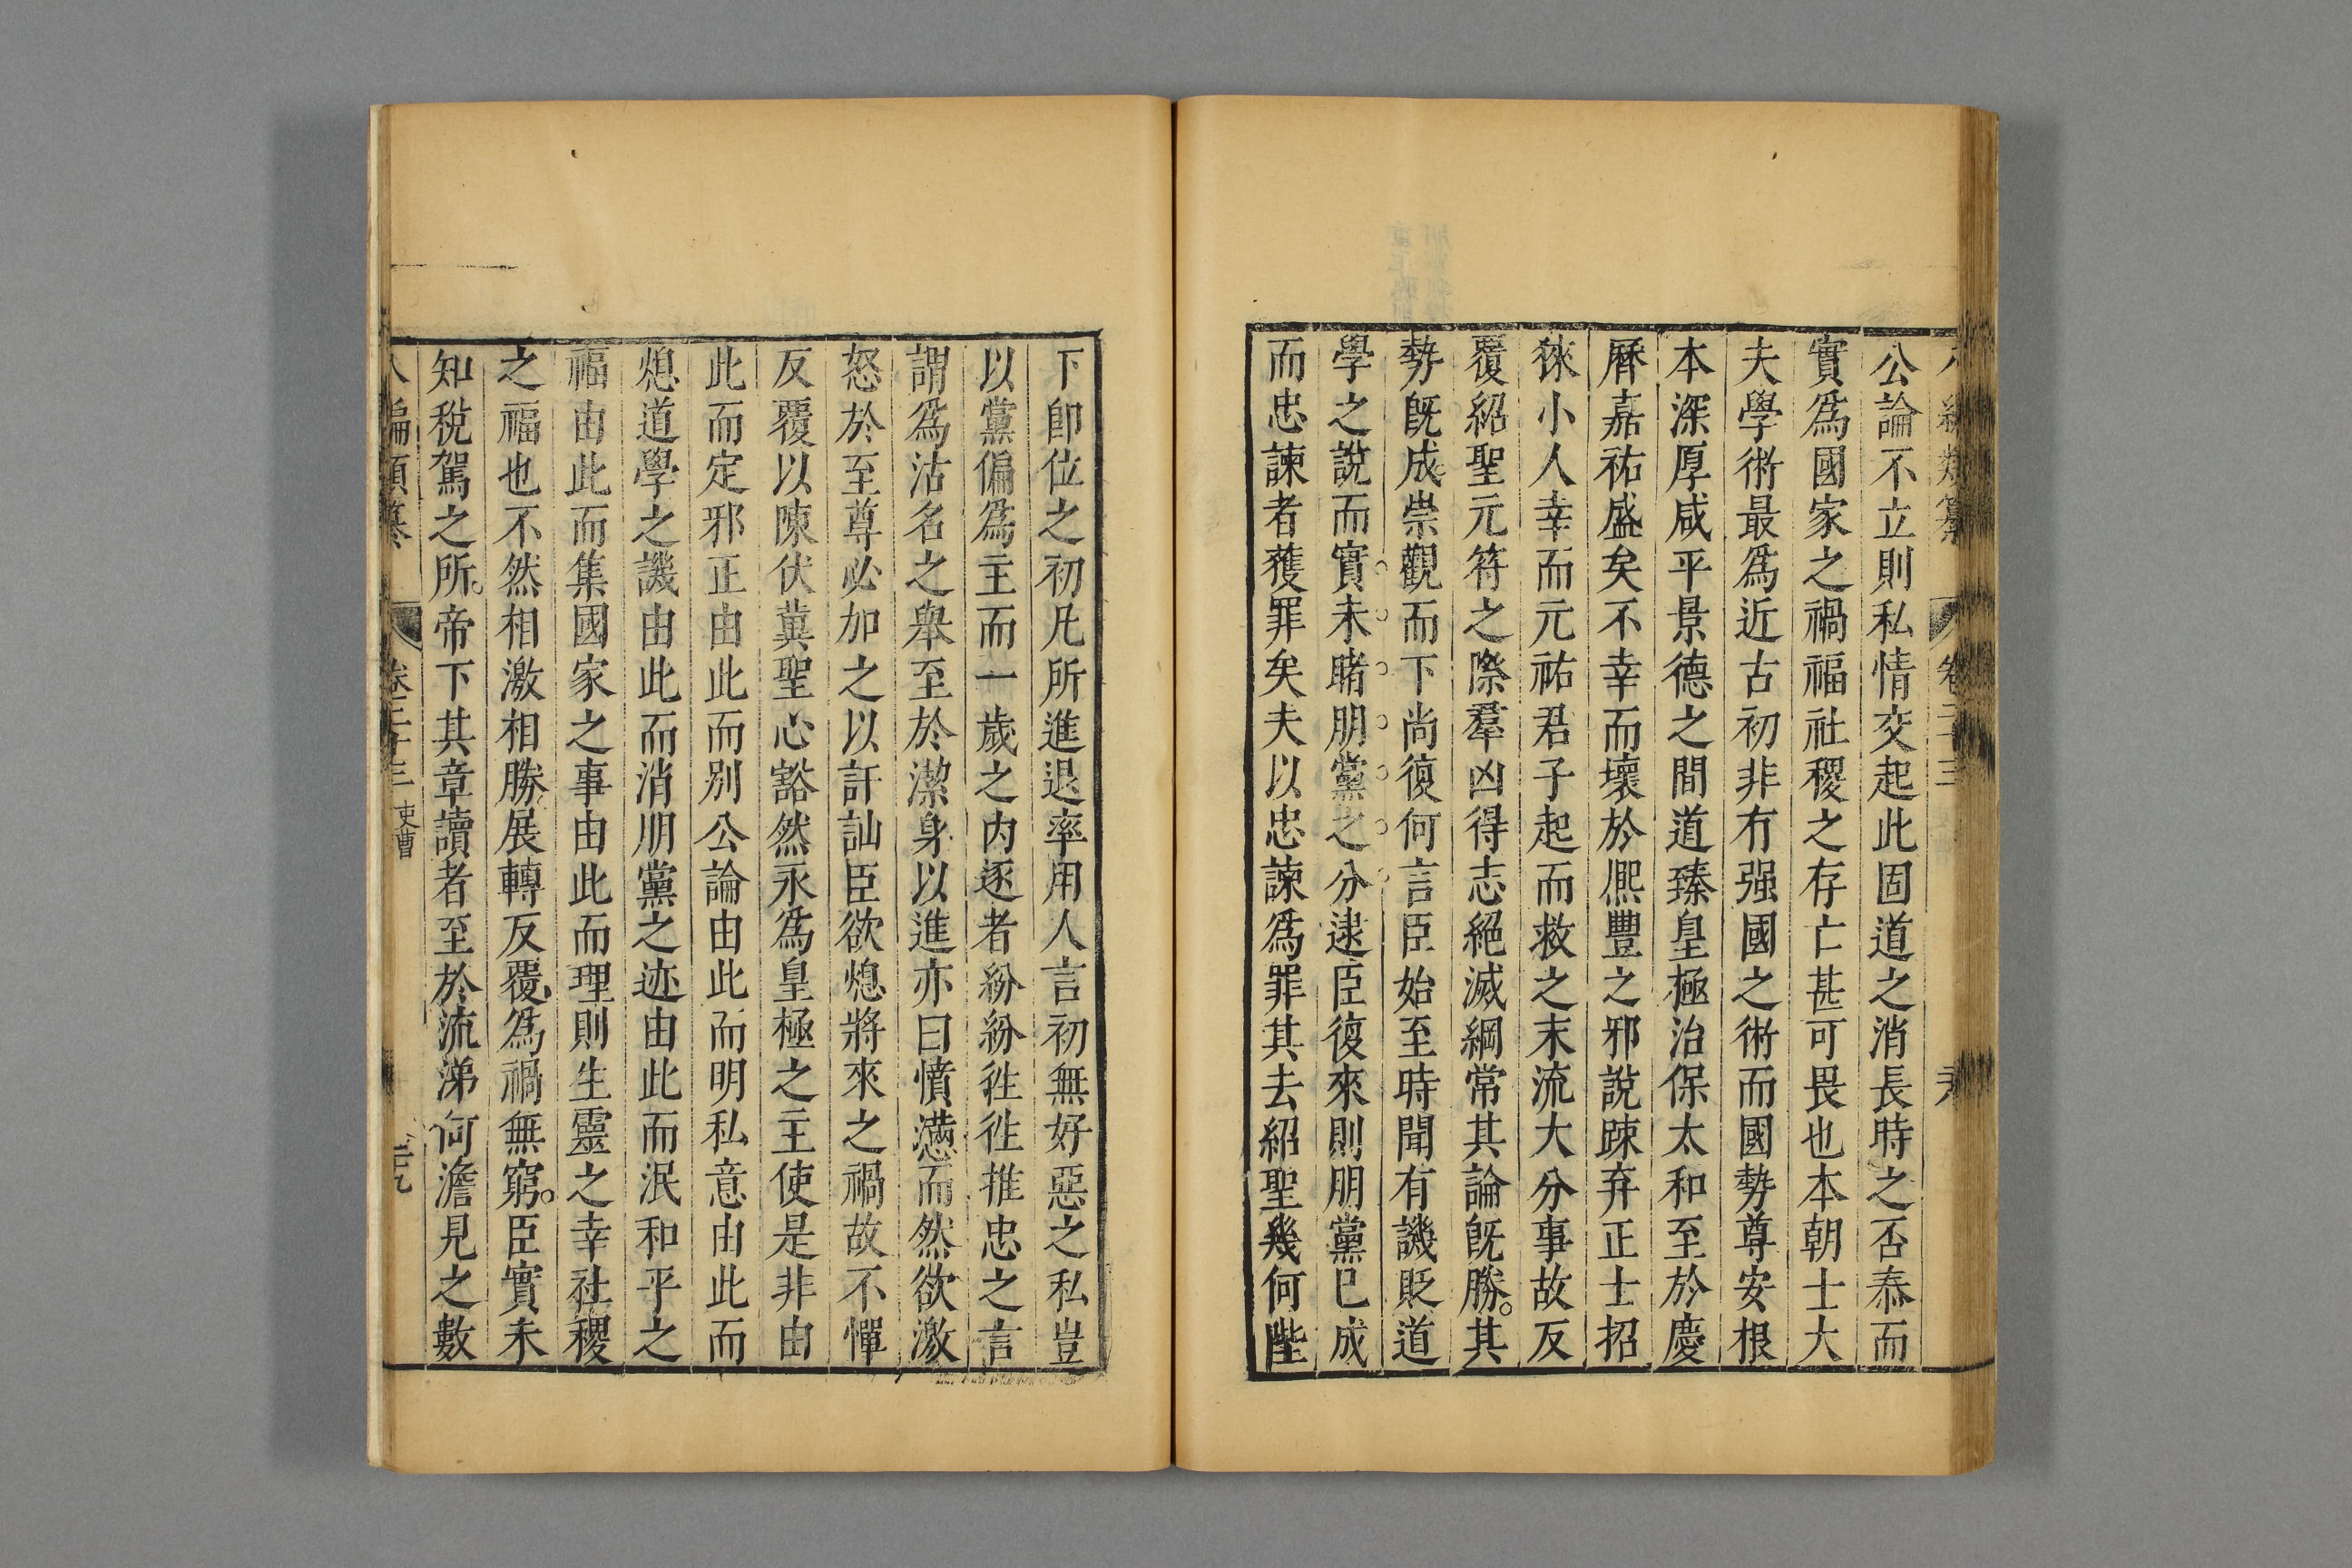 公論不立則私情交起此固道之消長時之否泰而
實爲國家之禍福社稷之存亡甚可畏也本朝士大
夫學術最爲近古初非有强國之術而國勢尊安根
本深厚咸平景德之間道臻皇極治保太和至於慶
曆嘉祐盛矣不幸而壞於熈豐之邪說踈弃正士招
徠小人幸而元祐君子起而救之末流大分事故反
覆紹聖元符之際羣凶得志絕滅綱常其論旣勝。其
勢旣成崇觀而下尚復何言臣始至時聞有譏貶道
學之說而實未睹朋黨之分逮臣復來則朋黨已成
而忠諫者獲罪矣夫以忠諫爲罪其去紹聖幾何陛
下卽位之初凡所進退率用人言初無好惡之私豈
以黨偏爲主而一歲之内逐者紛紛徃徃推忠之言
謂爲沽名之舉至於潔身以進亦曰憤懣而然欲激
怒於至尊必加之以訐訕臣欲熄將來之禍故不憚
反覆以陳伏冀聖心豁然永爲皇極之主使是非由
此而定邪正由此而别公論由此而明私意由此而
熄道學之譏由此而消朋黨之迹由此而泯和平之
福由此而集國家之事由此而理則生靈之幸社稷
之福也不然相激相勝展轉反覆爲禍無窮。臣實未
知稅駕之所。帝下其章讀者至於流涕何澹見之數
八編類纂 卷二十三 吏曹